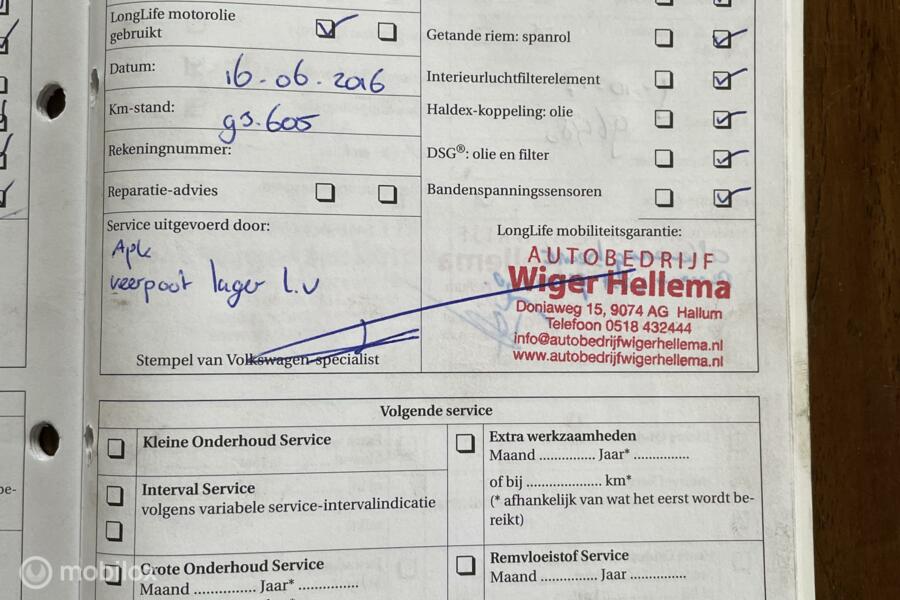 LongLife motorolie
gebruikt
Datum: 16-06-2016
Km-stand: 93.605
Rekeningnummer:
Reparatie-advies
Service uitgevoerd door:
Apk
veerpoot lager l.v
Stempel van Volkswagen-specialist
Getande riem: spanrol
Interieurluchtfilterelement
Haldex-koppeling: olie
DSG®: olie en filter
Bandenspanningssensoren
LongLife mobiliteitsgarantie:
AUTOBEDRIJF
Wiger Hellema
Doniaweg 15, 9074 AG Hallum
Telefoon 0518 432444
info@autobedrijfwigerhellema.nl
www.autobedrijfwigerhellema.nl
Volgende service
Kleine Onderhoud Service
Interval Service
volgens variabele service-intervalindicatie
Grote Onderhoud Service
Maand ............... Jaar* ...............
Extra werkzaamheden
Maand .............. Jaar* ..............
of bij .................... km*
(* afhankelijk van wat het eerst wordt be-
reikt)
Remvloeistof Service
Maand .............. Jaar ..............
be-
mobilox